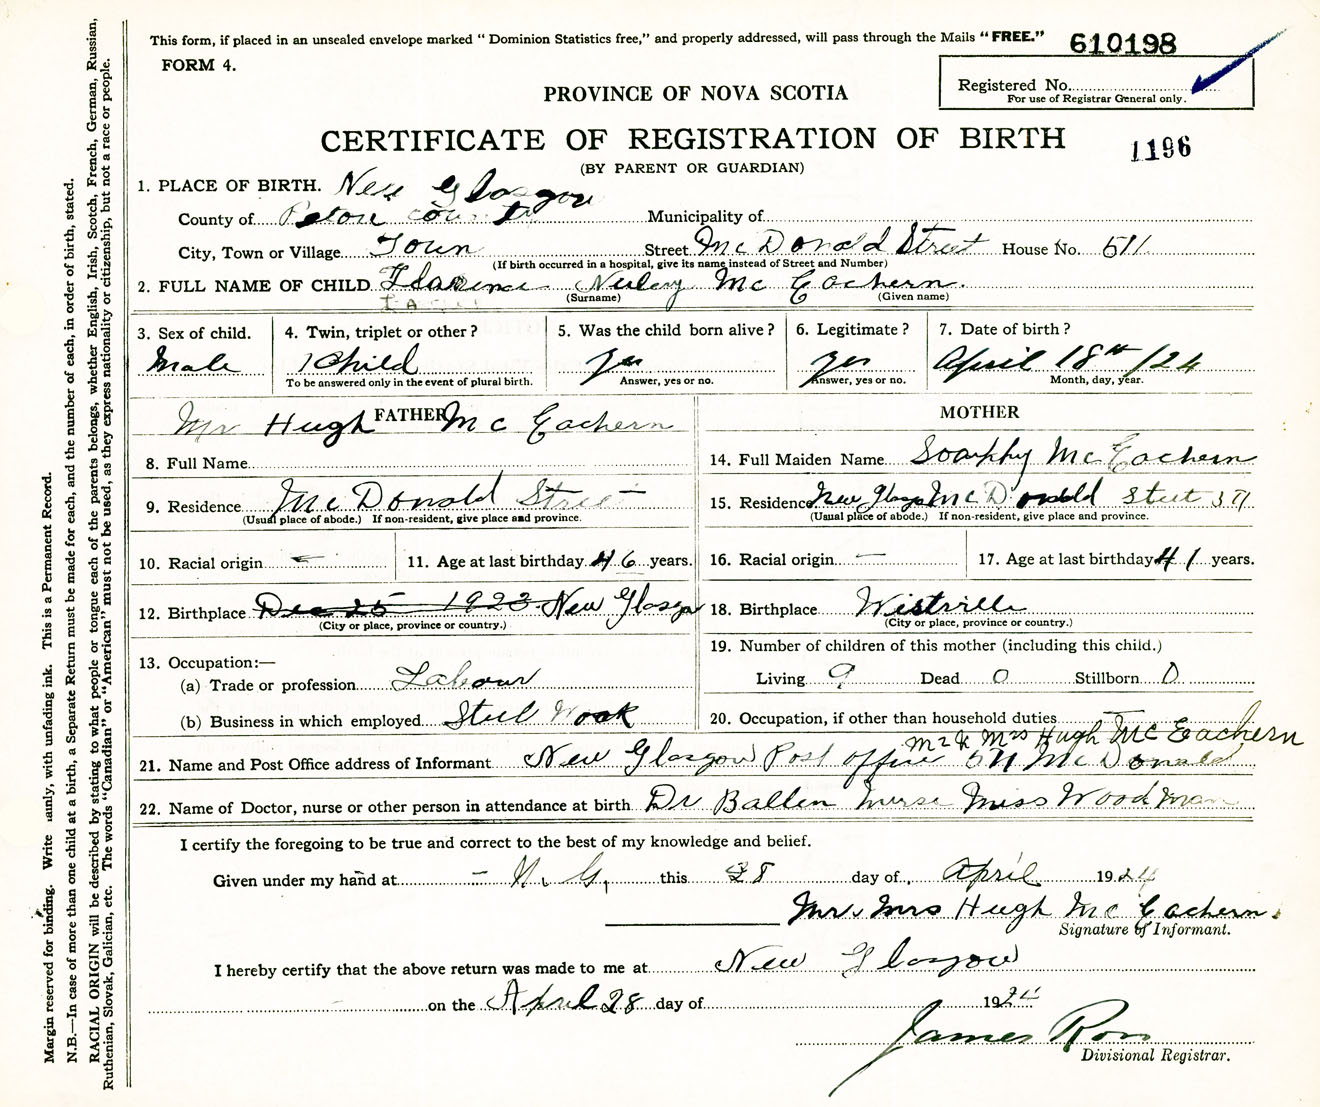 This form, if placed in an unsealed envelope marked " Dominion Statistics free," and properly addressed, will pass through the Mails "FREE."
610198
FORM 4.
Registered No.
For use of Registrar General only.
PROVINCE OF NOVA SCOTIA
CERTIFICATE OF REGISTRATION OF BIRTH
1196
(BY PARENT OR GUARDIAN)
1. PLACE OF BIRTH. New Glasgow
County of Municipality of
City, Town or Village Town Street McDonald Street House No. 511
(If birth occurred in a hospital, give its name instead of Street and Number)
2. FULL NAME OF CHILD Mc Eachern.
(Surname) (Given name)
3. Sex of child. 4. Twin, triplet or other? 5. Was the child born alive? 6. Legitimate? 7. Date of birth?
Male 1 Child yes yes April 18th /24
To be answered only in the event of plural birth. Answer, yes or no. Answer, yes or no. Month, day, year.
FATHER MOTHER
Mr Hugh Mc Eachern
8. Full Name
14. Full Maiden Name Soarphy Mc Eachern
9. Residence Mc Donald Street
(Usual place of abode.) If non-resident, give place and province.
15. Residence New Glasgow McDonald Steet
(Usual place of abode.) If non-resident, give place and province.
10. Racial origin — 11. Age at last birthday 46 years.
16. Racial origin — 17. Age at last birthday 41 years.
12. Birthplace Dec 25 1923 New Glasgow
(City or place, province or country.)
18. Birthplace Wistville
(City or place, province or country.)
13. Occupation:—
(a) Trade or profession Labour
(b) Business in which employed Steel Work
19. Number of children of this mother (including this child.)
Living 9 Dead 0 Stillborn 0
20. Occupation, if other than household duties —
Mr & Mrs Hugh Mc Eachern
21. Name and Post Office address of Informant New Glasgow Post office 511 Mc Donald
22. Name of Doctor, nurse or other person in attendance at birth Dr Ballem nurse Miss Woodman
I certify the foregoing to be true and correct to the best of my knowledge and belief.
Given under my hand at N. G, this 28 day of April 1924
Mr. Mrs Hugh Mc Eachern.
Signature of Informant.
I hereby certify that the above return was made to me at New Glasgow
on the April 28 day of 1924
James Ross
Divisional Registrar.
Margin reserved for binding. Write plainly, with unfading ink. This is a Permanent Record.
N.B.—In case of more than one child at a birth, a Separate Return must be made for each, and the number of each, in order of birth, stated.
RACIAL ORIGIN will be described by stating to what people or tongue each of the parents belongs, whether English, Irish, Scotch, French, German, Russian,
Ruthenian, Slovak, Galician, etc. The words "Canadian" or "American" must not be used, as they express nationality or citizenship, but not a race or people.